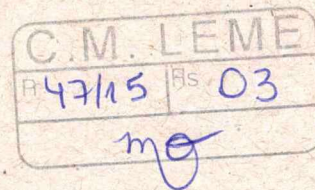 C.M. LEME
P 47/15 Fls 03